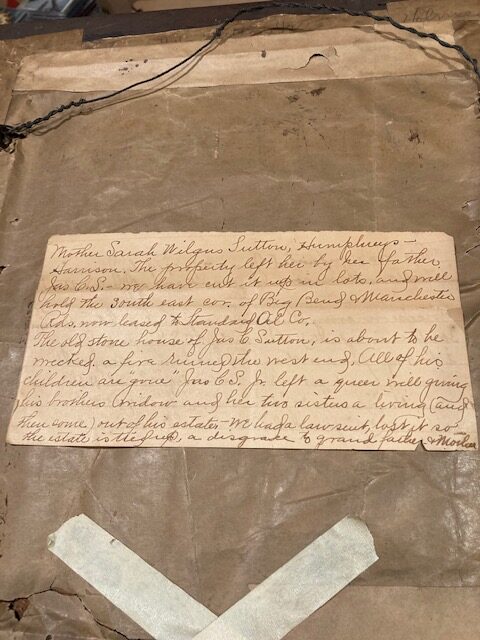 Mother Sarah Wilgus Sutton, Humphreys-
Harrison. The property left her by her father
Jas C.S- we have cut it up in lots, and will
hold the South east cor. of Big Bend & Manchester
Rds, now leased to Standard Oil Co.
The old stone house of Jas C Sutton, is about to be
wrecked. a fire ruined the west end, All of his
children are gone" Jas C S, Jr. left a queer will giving
his brothers widow and her two sisters a living (and
then some) out of his estate - We had a law suit, lost it so
the estate is tied up, a disgrace to grand father & Mother